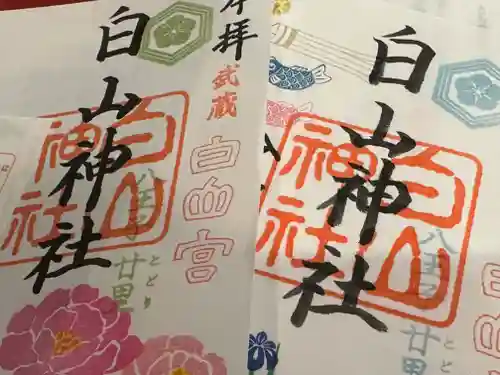 奉拝
武蔵
白山宮
白山神社
白山神社
八王子 廿里
とどり
白山神社
白山神社
八王子 廿里
とど
白山